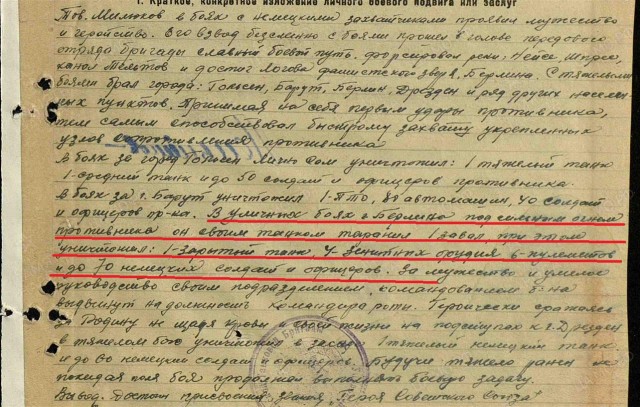 I. Краткое, конкретное изложение личного боевого подвига или заслуг
Тов. Милюков в боях с немецкими захватчиками проявил мужество
и геройство. Его взвод бессменно с боями прошел в голове передового
отряда бригады славный боевой путь, форсировал реки: Нейсе, Шпрее,
канал Тельтов и достиг логова фашистского зверя Берлина. С тяжелыми
боями брал города: Гольсен, Барут, Берлин, Дрозден и ряд других населен-
ных пунктов. Принимая на себя первым удары противника,
тем самым способствовал быстрому захвату укрепленных
узлов сопротивления противника
В боях за город Гольсен лично сам уничтожил: 1 тяжелый танк
1-средний танк и до 50 солдат и офицеров противника.
В боях за г. Барут уничтожил 1-ПТО, 8 автомашин, 40 солдат
и офицеров пр-ка. В уличных боях в Берлине под сильным огнем
противника он своим танком таранил 1 завал, при этом
уничтожил: 1-зарытый танк, 4-зенитных орудия 6-пулеметов
и до 70 немецких солдат и офицеров. За мужество и умелое
руководство своим подразделением, командованием б-на
выдвинут на должность командира роты. Героически сражаясь
за Родину не щадя крови и своей жизни на подступах к г. Дрезден
в тяжелом бою уничтожил в засаде 1 тяжелый немецкий танк
и до 80 немецких солдат и офицеров. Будучи тяжело ранен не
покидая поля боя продолжал выполнять боевую задачу.
Вывод: Достоин присвоения звания "Героя Советского Союза"